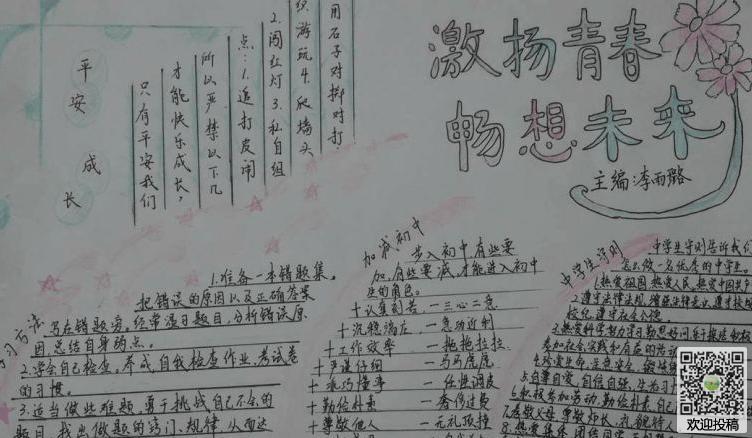 激扬青春
畅想未来
主编:李雨璐
平安成长
只有平安我们
才能快乐成长,
所以严禁以下几
点:1.追打皮闹
2.闯红灯 3.私自组
织游玩 4.爬墙头
用石子对掷对打
学习方法
1.准备一本错题集,
把错误的原因以及正确答案
写在错题旁,经常温习题目,分析错误原
因,总结自身弱点。
2.学会自己检查,养成自我检查作业,考试卷
的习惯。
3.适当做些难题,勇于挑战自己不会的
题目,找出做题的窍门、规律,从而达
加减初中
步入初中有些要
加,有些要减,才能进入初中
生的角色。
+认真刻苦 —三心二意
+沉稳踏实 —急功近利
+工作效率 —拖拖拉拉
+严谨仔细 —马马虎虎
+乖巧懂事 —任性调皮
+勤俭朴素 —奢侈过费
+尊敬他人 —无礼顶撞
中学生守则
中学生守则告诉我们
怎么做一名优秀的中学生。
1.热爱祖国,热爱人民,热爱中国共产
2.遵守法律法规,增强法律意识,遵守校
校纪,遵守社会公德。
3.热爱科学,努力学习,勤思好问,乐于探究,积极
参加社会实践和有益的活动
4.珍爱生命,注意安全,锻炼
5.自尊自爱,自信自强,生活习
6.积极参加劳动,勤俭朴素,自己
7.孝敬父母,尊敬师长,礼貌待人
8.热爱集体,团结同
欢迎投稿